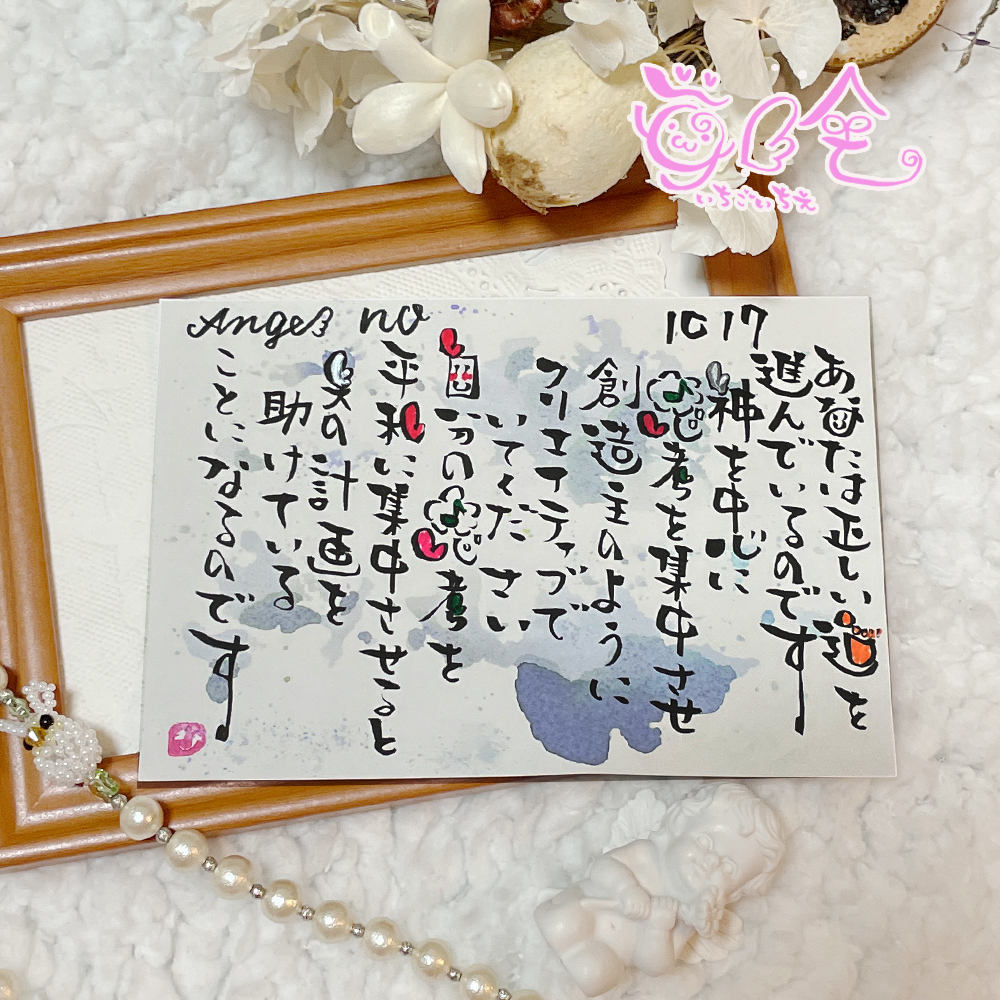 いちごいちえ
Angel no
1017
あなたは正しい道を
進んでいるのです
神を中心に
思考を集中させ
創造主のように
クリエイティブで
いてください
自分の思考を
平和に集中させると
天の計画を
助けている
ことになるのです